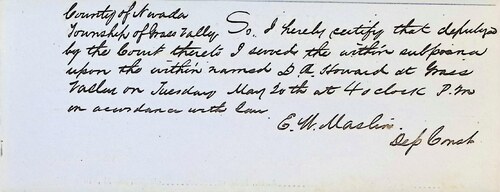 County of Nevada
Township of Grass Vally So. I hereby certify that deputized
by the Court thereto I served the within subpoena
upon the within named D A. Howard at Grass
Valley on Tuesday May 20th at 4 oclock P.M
in accordance with law
E. W. Maslin
Dep Const